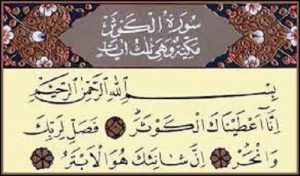 سُورَةُ الْكَوْثَرِ
مَكِّيَّةٌ وَهِيَ ثَلَاثُ آيَاتٍ
بِسْمِ اللَّهِ الرَّحْمَٰنِ الرَّحِيمِ
إِنَّا أَعْطَيْنَاكَ الْكَوْثَرَ فَصَلِّ لِرَبِّكَ
وَانْحَرْ إِنَّ شَانِئَكَ هُوَ الْأَبْتَرُ